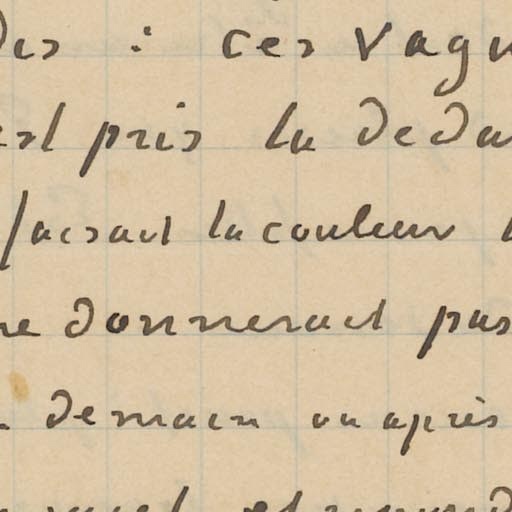 des : ces vagu
est pris la deda
faisait la couleur
ne donnerait pas
demain ou après